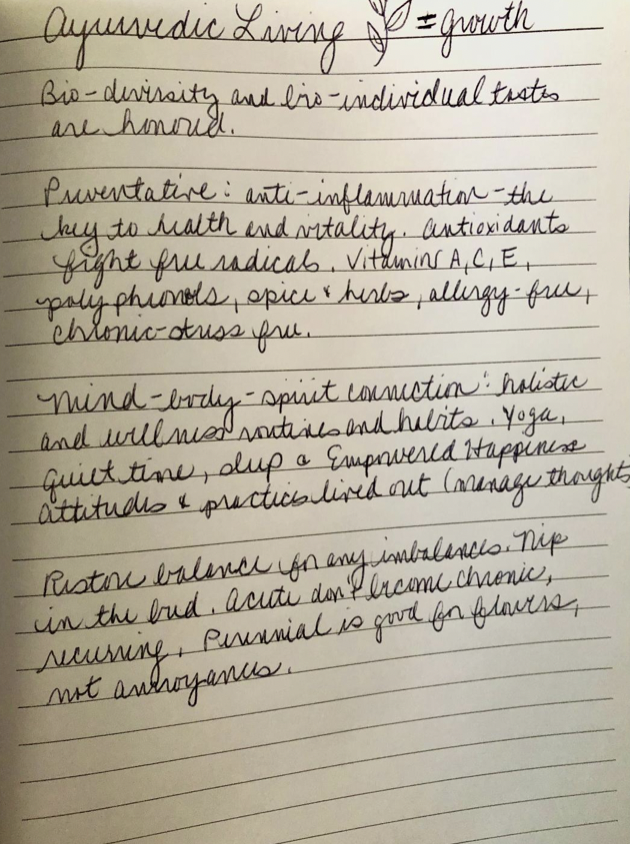 Ayurvedic Living = growth
Bio-diversity and bio-individual tastes
are honored.
Preventative: anti-inflammation-the
key to health and vitality. Antioxidants
fight free radicals. Vitamins A, C, E,
poly phenols, spice & herbs, allergy-free,
chronic-stress free.
Mind-body-spirit connection: holistic
and wellness routines and habits. Yoga,
quiet time, sleep & Empowered Happiness
attitudes & practices lived out (manage thoughts
Restore balance for any imbalances. Nip
in the bud. Acute don't become chronic,
recurring. Perennial is good for flowers,
not annoyances.